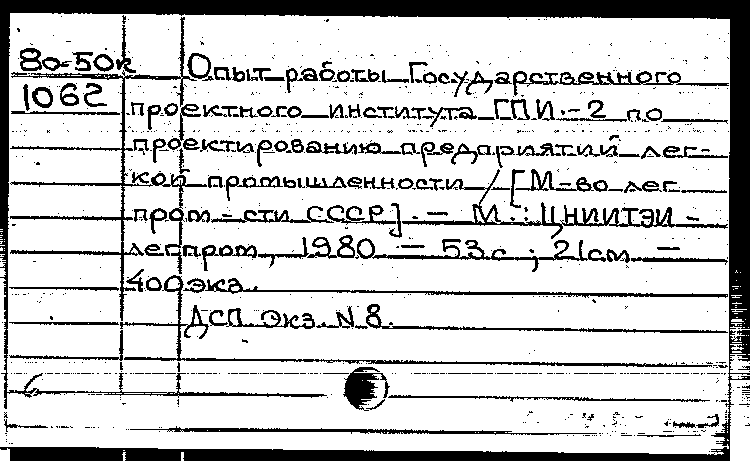 80-50к Опыт работы Государственного
1062 проектного института ГПИ-2 по
проектированию предприятий лег-
кой промышленности / [М-во лег.
пром-сти СССР]. — М.: ЦНИИТЭИ-
легпром, 1980 — 53с ; 21см —
400экз.
ДСП. Экз. N 8.
6